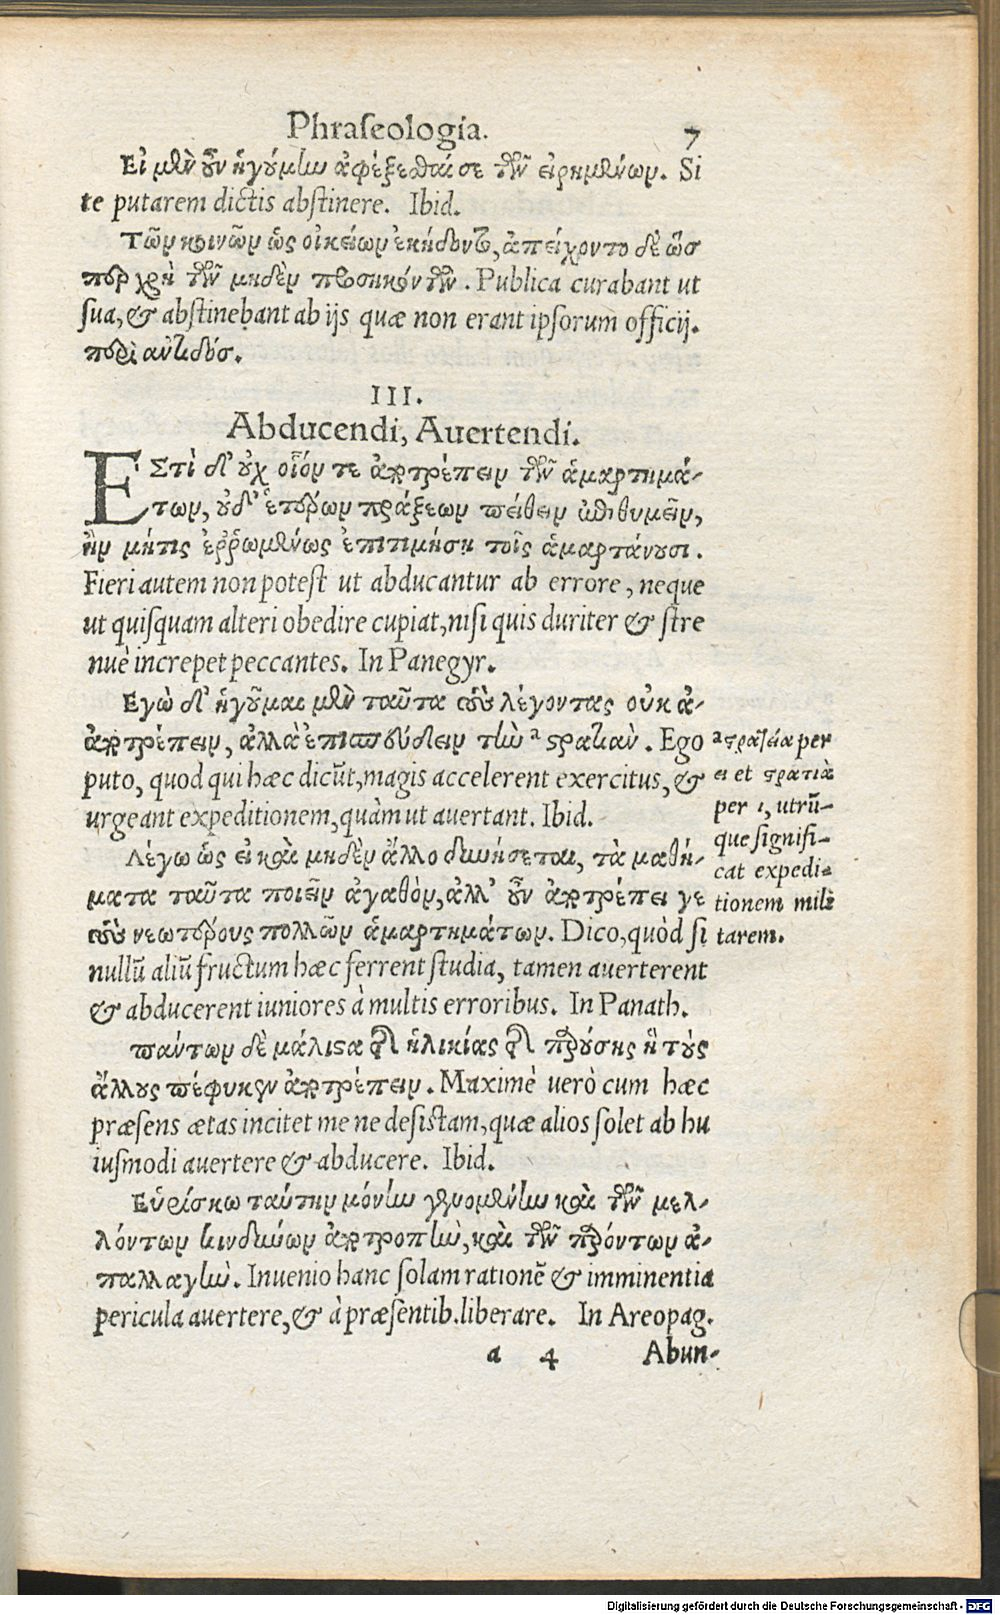 Phraseologia. 7
Εἰ μὲν οὖν ἡγούμην ἀφέξεσθαί σε τῶν εἰρημένων. Si
te putarem dictis abstinere. Ibid.
Τῶν κοινῶν ὡς οἰκείων ἐκήδοντο, ἀπείχοντο δὲ ὥσ
περ χρὴ τῶν μηδὲν προσηκόντων. Publica curabant ut
sua, & abstinebant ab ijs quæ non erant ipsorum officij.
περὶ ἀντιδόσ.
III.
Abducendi, Auertendi.
ΕΣτὶ δ' οὐχ οἷόν τε ἀποτρέπειν τῶν ἁμαρτημά-
των, οὐδ' ἑτέρων πράξεων πείθειν ἐπιθυμεῖν,
ἢν μήτις ἐῤῥωμένως ἐπιτιμήσῃ τοῖς ἁμαρτάνουσι.
Fieri autem non potest ut abducantur ab errore, neque
ut quisquam alteri obedire cupiat, nisi quis duriter & stre
nuè increpet peccantes. In Panegyr.
Εγὼ δ' ἡγοῦμαι μὲν ταῦτα τοὺς λέγοντας οὐκ ἀ-
ποτρέπειν, ἀλλὰ ἐπισπεύδειν τὴν ᵃ στρατιὰν. Ego
puto, quod qui hæc dicūt, magis accelerent exercitus, &
urgeant expeditionem, quàm ut auertant. Ibid.
ᵃ στρατεία per
ει et στρατιὰ
per ι, utrũ-
que signifi-
cat expedi-
tionem mili
tarem.
Λέγω ὡς εἰ καὶ μηδὲν ἄλλο δυνήσεται, τὰ μαθή-
ματα ταῦτα ποιεῖν ἀγαθὸν, ἀλλ' οὖν ἀποτρέπει γε
τοὺς νεωτέρους πολλῶν ἁμαρτημάτων. Dico, quòd si
nullũ aliũ fructum hæc ferrent studia, tamen auerterent
& abducerent iuniores à multis erroribus. In Panath.
πάντων δὲ μάλιστα τῆς ἡλικίας τῆς παρούσης ἣ τοὺς
ἄλλους πέφυκεν ἀποτρέπειν. Maximè uerò cum hæc
præsens ætas incitet me ne desistam, quæ alios solet ab hu
iusmodi auertere & abducere. Ibid.
Εὑρίσκω ταύτην μόνην γενομένην καὶ τῶν μελ-
λόντων κινδύνων ἀποτροπὴν, καὶ τῶν παρόντων ἀ-
παλλαγὴν. Inuenio hanc solam rationẽ & imminentia
pericula auertere, & à præsentib. liberare. In Areopag.
a 4 Abun-
Digitalisierung gefördert durch die Deutsche Forschungsgemeinschaft - DFG